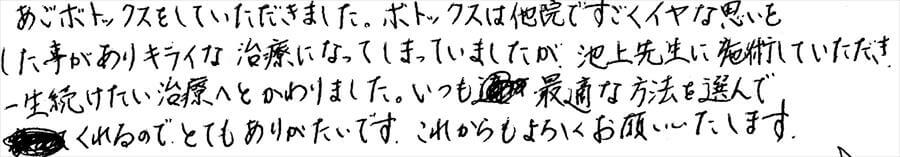 あごボトックスをしていただきました。ボトックスは他院ですごくイヤな思いを
した事がありキライな治療になってしまっていましたが、池上先生に施術していただき、
一生続けたい治療へとかわりました。いつも最適な方法を選んで
くれるので、とてもありがたいです。これからもよろしくお願いいたします。